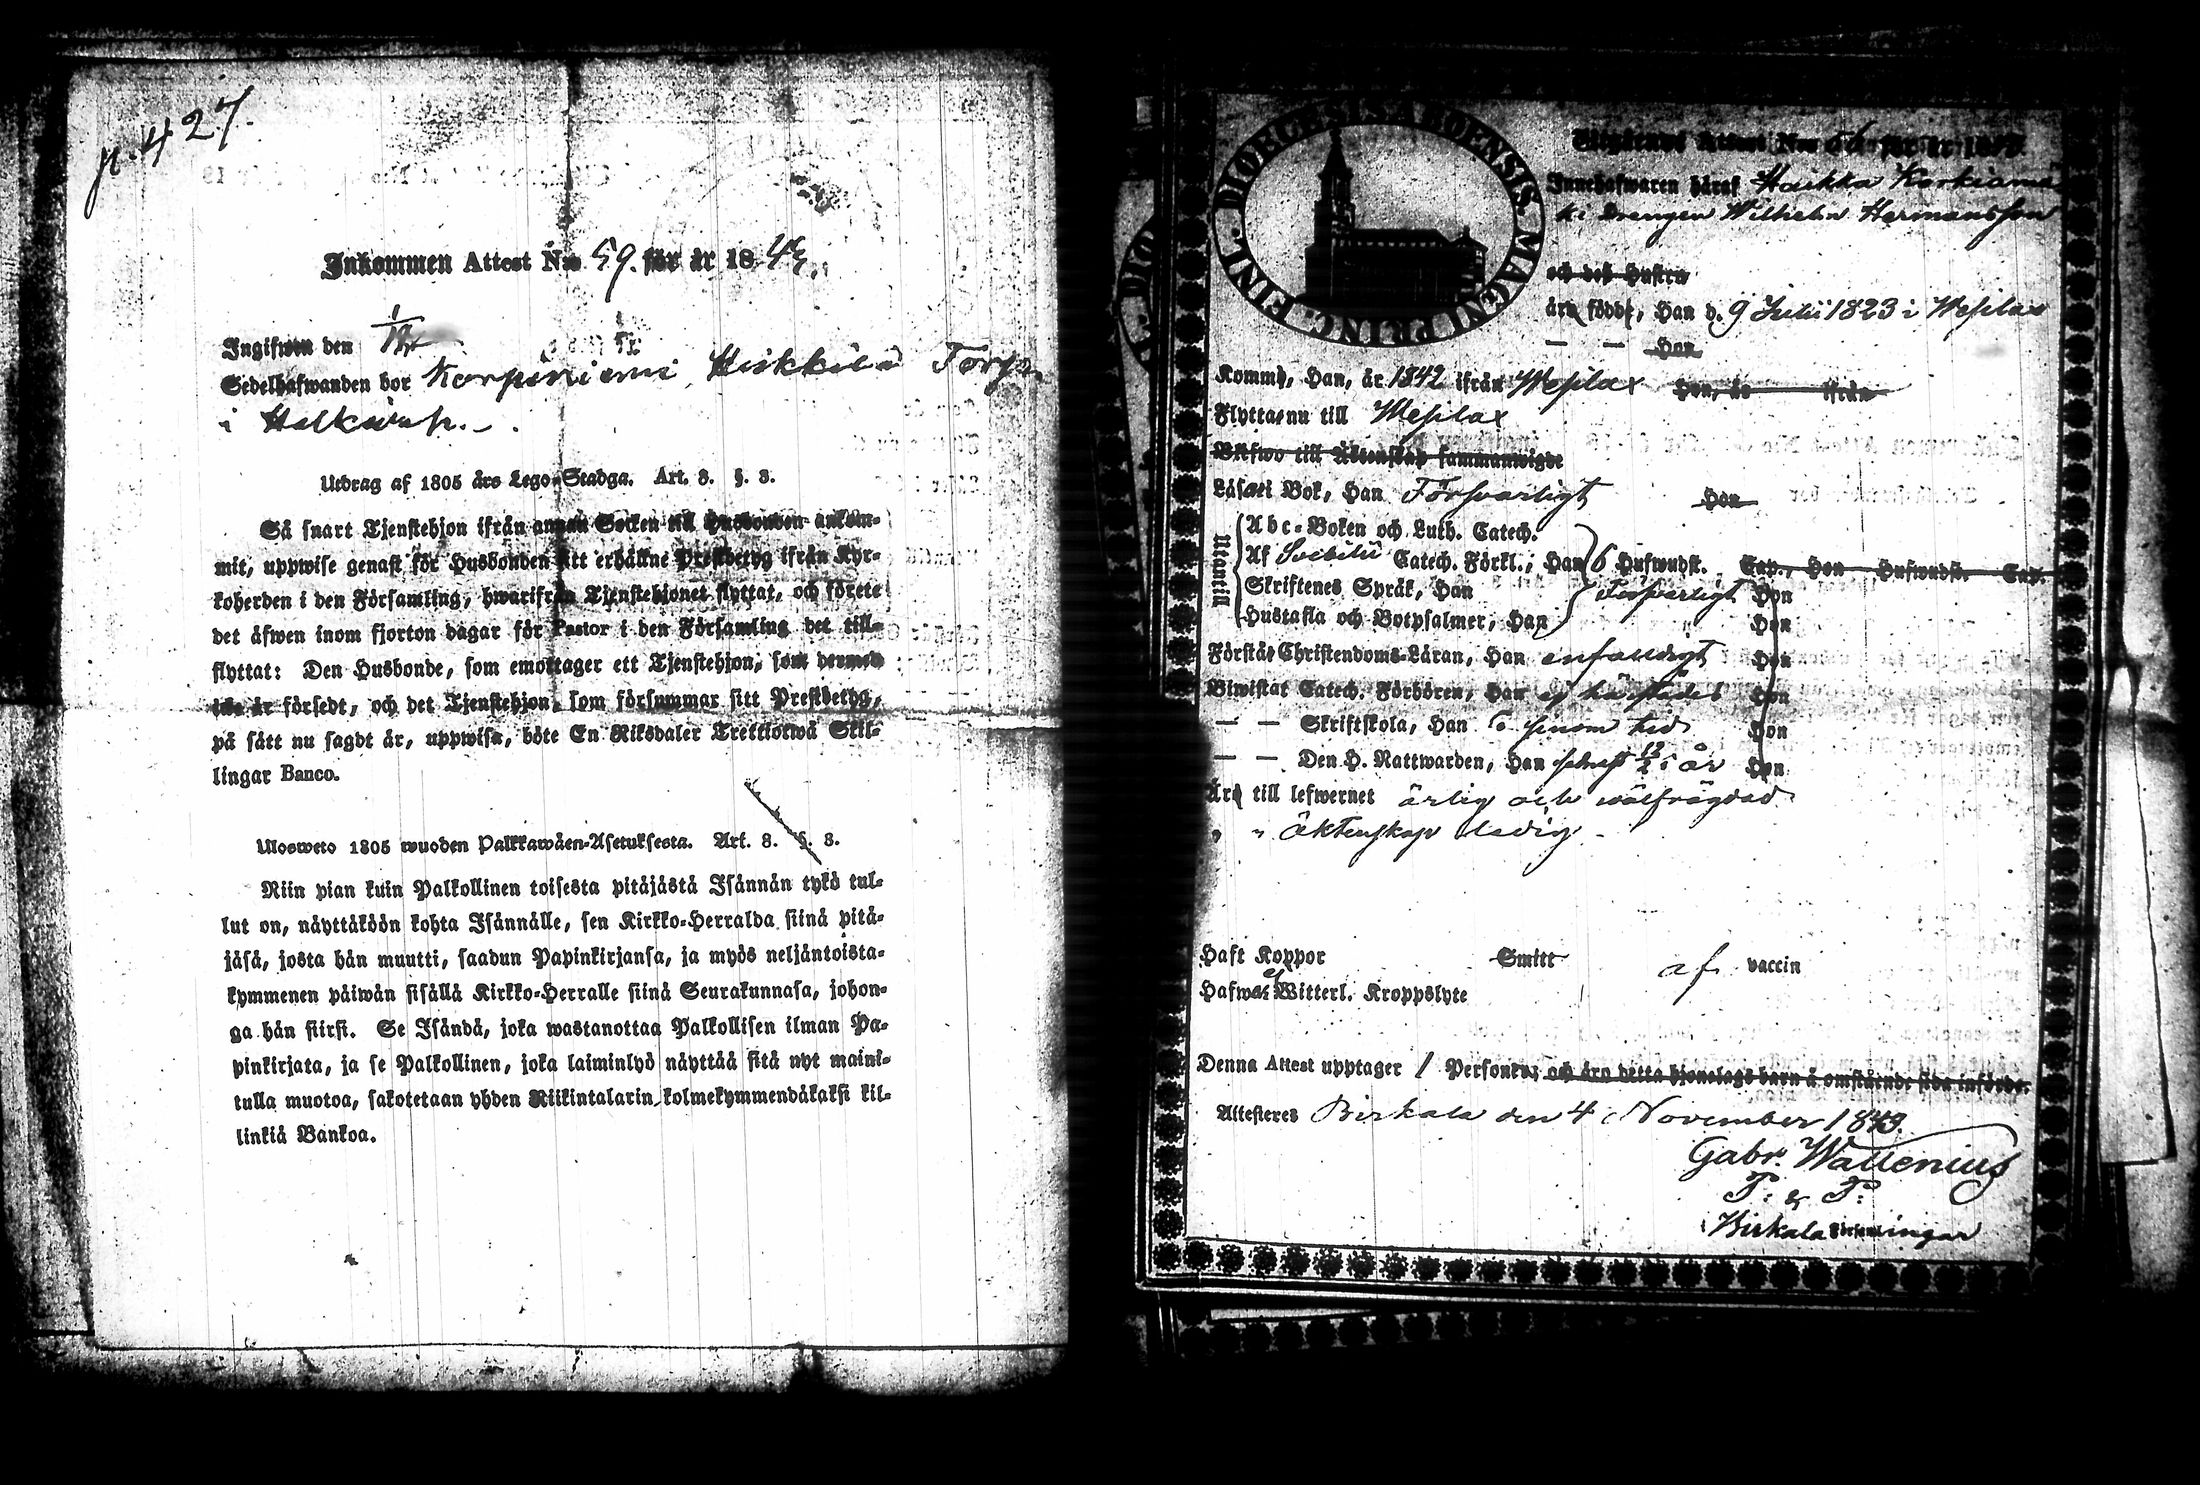 p. 427.
Inkommen Attest N:o 59. för år 1843.
Ingifwen den
Sedelhafwanden bor Korpiniemi Heikkilä Torp
i Halkivah.
Utdrag af 1805 års Lego-Stadga. Art. 8. §. 3.
Så snart Tjenstehjon ifrån annan Socken till Husbonden ankom-
mit, uppwise genast för Husbonden sitt erhållne Prestbetyg ifrån Kyr-
koherden i den Församling, hwarifrån Tjenstehjonet flyttat, och förete
det äfwen inom fjorton dagar för Pastor i den Församling det till-
flyttat: Den Husbonde, som emottager ett Tjenstehjon, som dermed
icke är försedt, och det Tjenstehjon, som försummar sitt Prestbetyg,
på sätt nu sagdt är, uppwisa, böte En Riksdaler Trettiotwå Skil-
lingar Banco.
Ulosweto 1805 wuoden Palkkawäen-Asetuksesta. Art. 8. §. 3.
Niin pian kuin Palkollinen toisesta pitäjästä Isännän tykö tul-
lut on, näyttäköön kohta Isännälle, sen Kirkko-Herralda siinä pitä-
jäsä, josta hän muutti, saadun Papinkirjansa, ja myös neljäntoista-
kymmenen päiwän sisällä Kirkko-Herralle siinä Seurakunnasa, johon-
ga hän siirsi. Se Isändä, joka wastanottaa Palkollisen ilman Pa-
pinkirjata, ja se Palkollinen, joka laiminlyö näyttää sitä nyt maini-
tulla muotoa, sakotetaan yhden Riikintalarin kolmekymmendäkaksi kil-
linkiä Bankoa.
DIOECESIS ABOENSIS. MAGNI PRINC. FINL.
Utgånget Attest N:o 56 för år 1843.
Innehafwaren häraf Haikka Korkiamä
ki Drengen Wilhelm Hermansson
och deß Hustru
äro födde, Han d. 9 Julii 1823 i Wesilax
— — Hon
Kommo, Han, år 1842 ifrån Wesilax Hon, år ifrån
Flytta nu till Wesilax
Blefwo till Äktenskap sammanwigde
Läsa i Bok, Han Försvarligt Hon
Utantill
Abc-Boken och Luth. Catech.
Af Svebilii Catech. Förkl., Han 6 Hufwudst. Cap., Hon Hufwudst. Cap.
Skriftenes Språk, Han Försvarligt Hon
Hustafla och Botpsalmer, Han Hon
Förstå Christendoms-Läran, Han enfaldigt Hon
Biwistat Catech. Förhören, Han ej härstädes Hon
— — Skriftskola, Han i sinom tid Hon
— — Den H. Nattwarden, Han senast 12/2 i år Hon
Äro till lefwernet ärlig och wälfrägdad
" " äktenskap ledig.
Haft Koppor Smitt af vaccin
Hafwa ej Witterl. Kroppslyte
Denna Attest upptager 1 Personer; och äro detta hjonelags barn å omstående sida införde.
Attesteres Birkala den 4 November 1843.
Gabr. Wallenius
P: & P:
i Birkala Församlingar